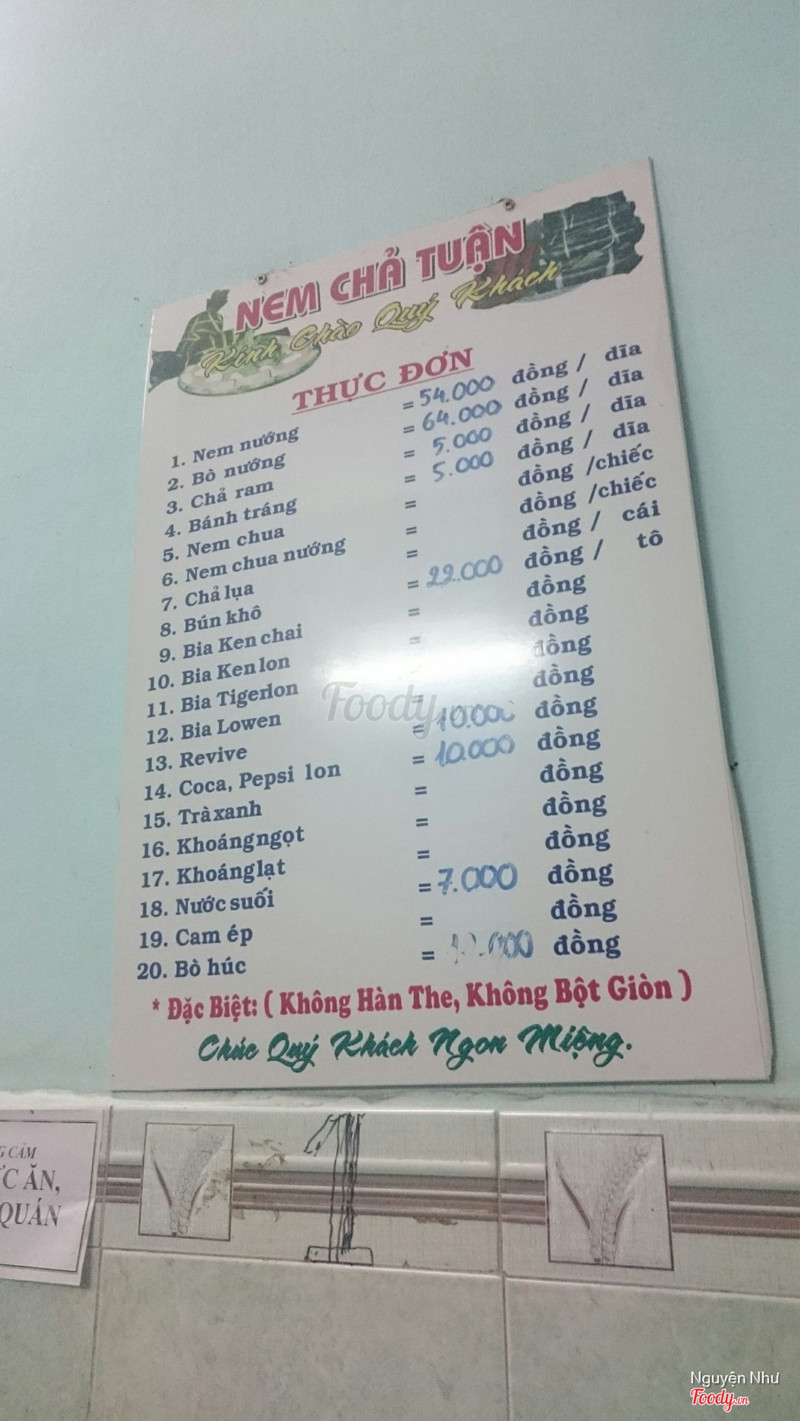 NEM CHẢ TUẬN
Kính Chào Quý Khách
THỰC ĐƠN
1. Nem nướng = 54.000 đồng / dĩa
2. Bò nướng = 64.000 đồng / dĩa
3. Chả ram = 5.000 đồng / dĩa
4. Bánh tráng = 5.000 đồng / dĩa
5. Nem chua = đồng /chiếc
6. Nem chua nướng = đồng /chiếc
7. Chả lụa = đồng / cái
8. Bún khô = 22.000 đồng / tô
9. Bia Ken chai = đồng
10. Bia Ken lon = đồng
11. Bia Tiger lon đồng
12. Bia Lowen = đồng
13. Revive = 10.000 đồng
14. Coca, Pepsi lon = 10.000 đồng
15. Trà xanh = đồng
16. Khoáng ngọt = đồng
17. Khoáng lạt = đồng
18. Nước suối = 7.000 đồng
19. Cam ép = đồng
20. Bò húc = đồng
* Đặc Biệt: ( Không Hàn The, Không Bột Giòn )
Chúc Quý Khách Ngon Miệng.
CẢM
ĂN,
QUÁN
Foody
Nguyện Như
Foody.vn